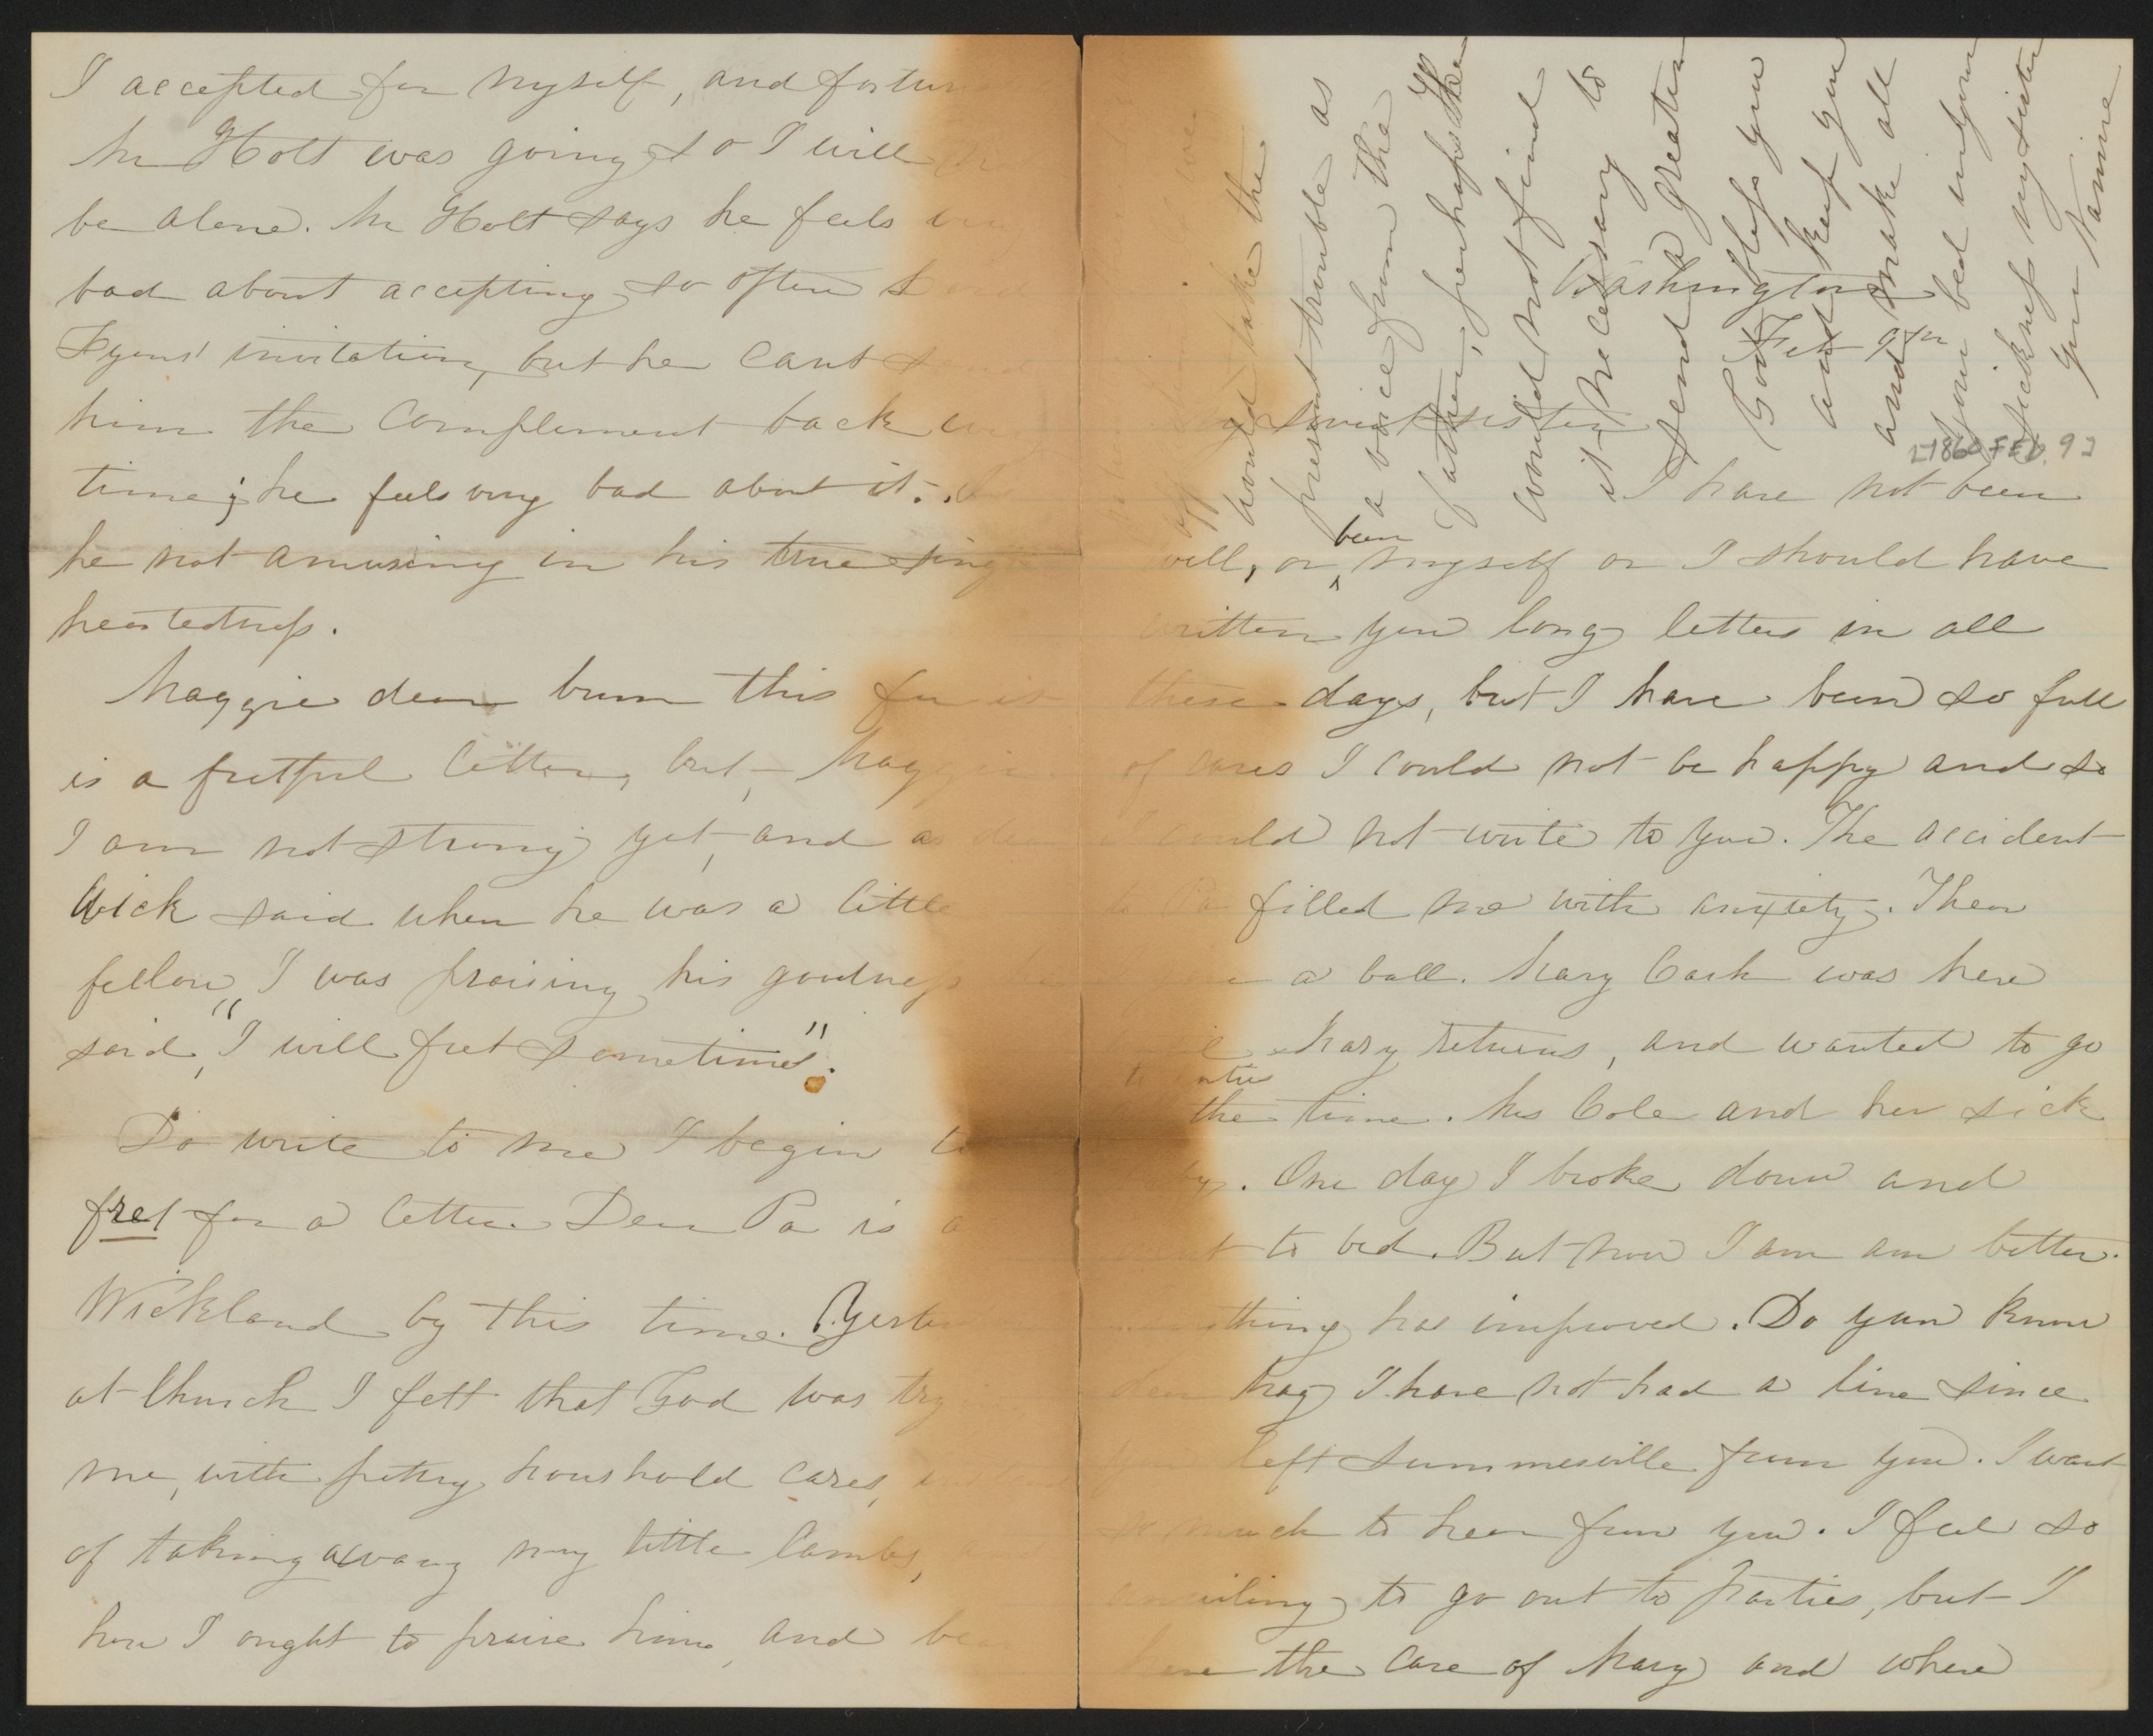 I accepted for myself, and fortun
Mr Holt was going so I will
be alone. Mr Holt says he feels very
bad about accepting so often Lord
Lyons' invitation, but he cant send
him the complement back any
time; he feels very bad about it. Is
he not amusing in his true sing
heartedness.
Maggie dear burn this for it
is a fretful letter, but, Maggie
I am not strong yet, and as dear
Wick said when he was a little
fellow, I was praising his goodness he
said, "I will fret sometimes".
Do write to me I begin to
fret for a letter. Dear Pa is a
Wickland by this time. Yester
at Church I felt that God was try
me, with pettry houshold cares, instead
of taking away my little lambs,
how I ought to praise him, and bear
Washington
Feb 9th
[1860 FEB. 9]
My sweet sister
I have not been
well, or been myself or I should have
written you long letters in all
these days, but I have been so full
of cares I could not be happy and so
I could not write to you. The accident
to Pa filled me with anxiety. Then
a ball. Mary Cash was here
Mary returns, and wanted to go
to parties
all the time. Mrs Cole and her sick
baby. One day I broke down and
went to bed. But now I am am better.
everything has improved. Do you know
dear Mag I have not had a line since
you left Summersville from you. I want
so much to hear from you. I feel so
unwilling to go out to parties, but I
have the care of Mary and where
off
would take the
present trouble as
a voice from the
Father, perhaps He
would not find
it necessary to
send a greater
God bless you
and keep you
and make all
your bed in your
sickness my sister
your Nannie